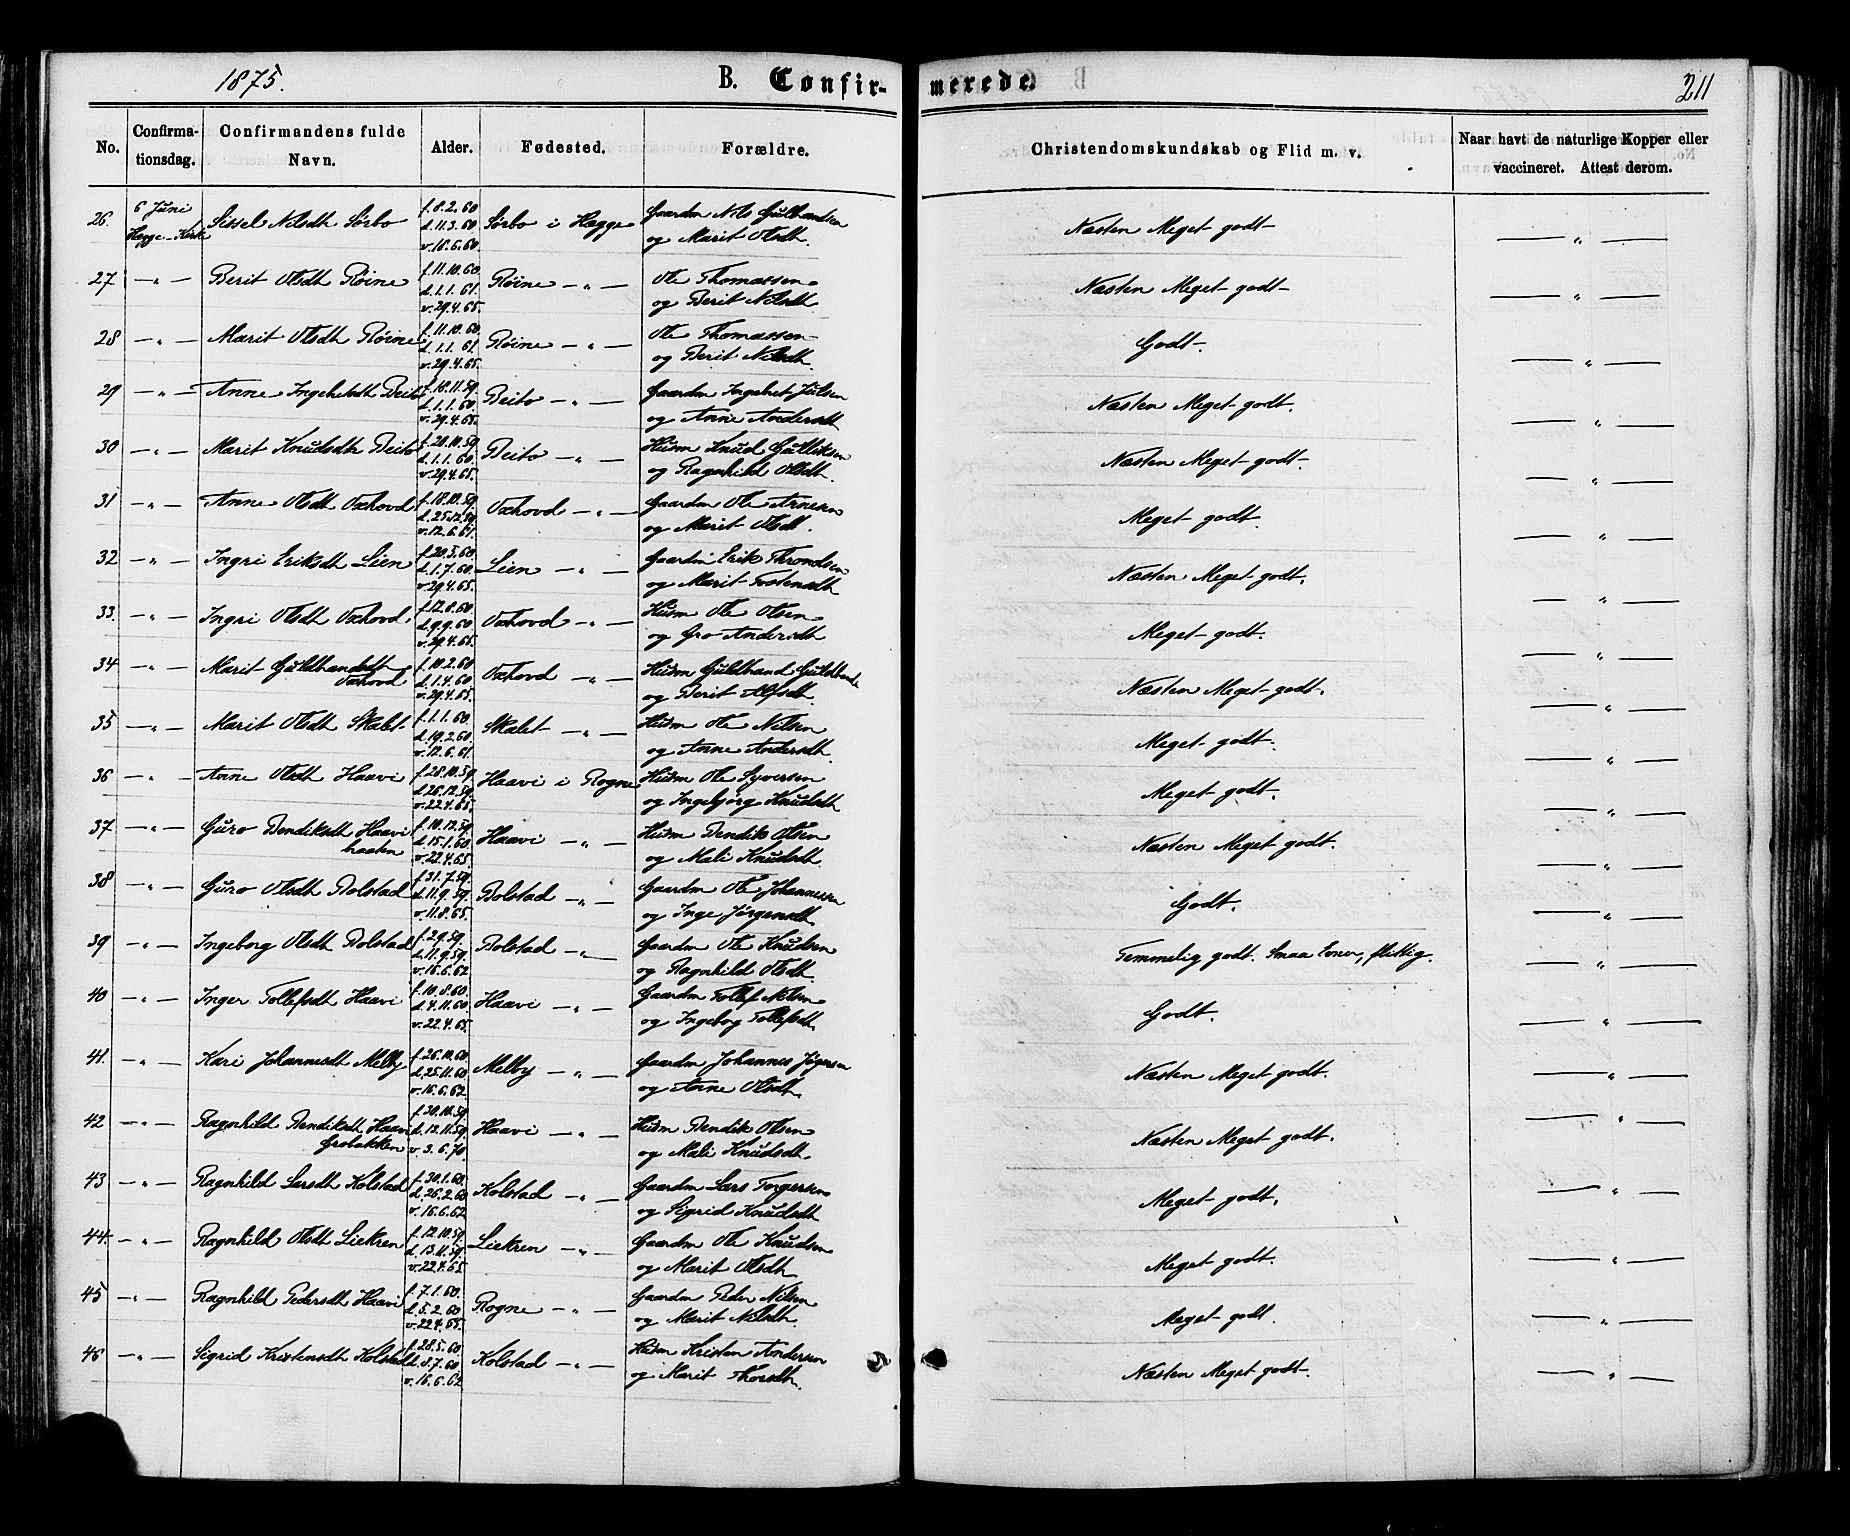 1875.
B. Confirmerede.
211
No.
Confirmationsdag.
Confirmandens fulde Navn.
Alder.
Fødested.
Forældre.
Christendomskundskab og Flid m. v.
Naar havt de naturlige Kopper eller vaccineret. Attest derom.
26. 6 Juni Hegge-Kirke Sissel Nilsdt Sørbo f. 8.2.60 d. 11.3.60 v. 18.6.60. Sørbo i Hegge Gaardm Nils Gulbrandsen og Marit Olsdt. Næsten Meget godt — „ —
27 — „ — Berit Olsdt Røine f. 11.10.60. d. 1.1.61. v. 29.4.65. Røine — „ — Ole Thomassen og Berit Nilsdt Næsten Meget godt — „ —
28 — „ — Marit Olsdt Røine f. 11.10.60. d. 1.1.61. v. 29.4.65. Røine — „ — Ole Thomassen og Berit Nilsdt Godt. — „ —
29 — „ — Anne Ingebretsdt Beito f. 18.11.59 d. 1.1.60. v. 29.4.65. Beito — „ — Gaardm Ingebret Julsen og Anne Andersdt Næsten Meget godt. — „ —
30 — „ — Marit Knudsdt Beito f. 20.10.59. d. 1.1.60. v. 29.4.65. Beito — „ — Husm Knud Gulliksen og Ragnhild Olsdt. Næsten Meget godt. — „ —
31 — „ — Anne Olsdt Oxhovd f. 18.10.59. d. 25.12.59 v. 12.6.61. Oxhovd — „ — Gaardm Ole Arnesen og Marit Olsdt. Meget godt. — „ —
32 — „ — Ingri Eriksdt Lien f. 20.5.60. d. 1.7.60. v. 29.4.65. Lien — „ — Gaardm Erik Throndsen og Marit Tostensdt Næsten Meget godt. — „ —
33. — „ — Ingri Olsdt Oxhovd f. 12.8.60 d. 9.9.60 v. 29.4.65. Oxhovd — „ — Husm Ole Olsen og Gro Andersdt Meget godt. — „ —
34 — „ — Marit Guldbrandsdt Oxhovd f. 10.2.60 d. 1.4.60 v. 29.4.65. Oxhovd — „ — Husm Guldbrand og Berit Alfsdt. Næsten Meget godt. — „ —
35 — „ — Marit Olsdt Skalet f. 1.1.60. d. 19.2.60. v. 12.6.61. Skalet — „ — Husm Ole Nilsen og Anne Andersdt. Meget godt. — „ —
36 — „ — Anne Olsdt Haavi f. 28.10.59. d. 26.12.59. v. 22.4.65. Haavi i Rogne Husm Ole Syversen og Ingebjørg Knudsdt Meget godt. — „ —
37 — „ — Guro Bendiksdt Haavi f. 10.12.59. d. 15.1.60. v. 22.4.65. Haavi — „ — Husm Bendik Olsen og Mali Knudsdt Næsten Meget godt. — „ —
38 — „ — Guro Olsdt Bolstad f. 31.7.59. d. 11.9.59. v. 11.8.65. Bolstad — „ — Gaardm Ole Johannessen og Inge Jørgensdt Godt. — „ —
39 — „ — Ingeborg Olsdt Bolstad f. 2.9.59. d. 11.9.59. v. 16.6.62 Bolstad — „ — Gaardm Ole Knudsen og Ragnhild Olsdt. Temmelig godt. Smaa Evner, flittig. — „ —
40 — „ — Inger Tollefsdt Haavi f. 10.8.60. d. 4.11.60. v. 22.4.65. Haavi — „ — Gaardm Tollef Nilsen og Ingeborg Tollefsdt. Godt. — „ —
41. — „ — Kari Johannesdt Melby f. 26.10.60 d. 25.11.60 v. 16.6.62. Melby — „ — Gaardm Johannes Jørgensen og Anne Olsdt. Næsten Meget godt. — „ —
42 — „ — Ragnhild Bendiksdt Haavi f. 30.10.59. d. 12.11.59. v. 3.6.70. Haavi — „ — Husm Bendik Olsen og Mali Knudsdt. Næsten Meget godt. — „ —
43 — „ — Ragnhild Larsdt Kolstad f. 30.1.60. d. 26.2.60 v. 16.6.62. Kolstad — „ — Gaardm Lars Torgersen og Sigrid Knudsdt Meget godt. — „ —
44. — „ — Ragnhild Olsdt Liekren f. 12.10.59. d. 13.11.59. v. 22.4.65 Liekren — „ — Gaardm Ole Knudsen og Marit Olsdt Meget godt. — „ —
45 — „ — Ragnhild Pedersdt Haavi f. 7.1.60. d. 5.2.60 v. 22.4.65. Rogne — „ — Gaardm Peder Nilsen og Marit Nilsdt. Meget godt. — „ —
46 — „ — Sigrid Kristensdt Kolstad f. 28.5.60 d. 8.7.60 v. 16.6.62 Kolstad — „ — Husm Kristen Andersen og Marit Thorsdt. Næsten Meget godt. — „ —